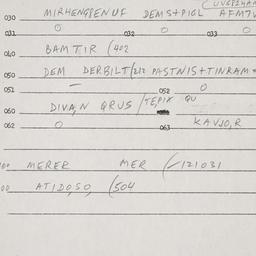 030 MIRHENGPENUE DEMS+PIGL AFM7V
031 O 032 O 033 O
040 BAMTIR (402
050 DEM DERBILT/212 PASTNIS+TINRAM+
051 — 052 O
060 DIVAN QRUS /TEPIX QU
062 O 063 KAVJO,R
MERER MER (-121031
00 ATIDOSO, (504